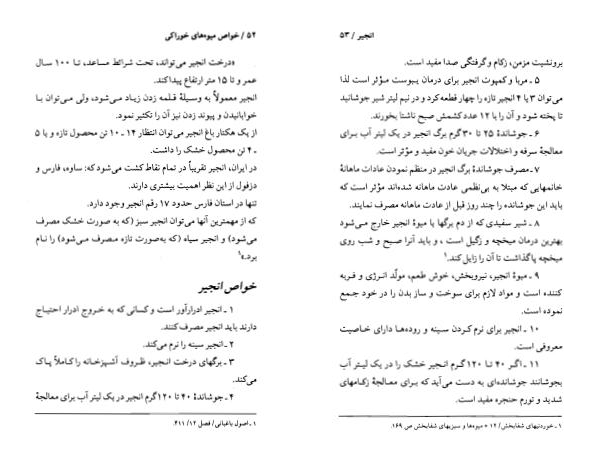 ۵۲ / خواص میوه‌های خوراکی
«درخت انجیر می‌تواند، تحت شرائط مساعد، تا ۱۰۰ سال
عمر و تا ۱۵ متر ارتفاع پیدا کند.
انجیر معمولاً به وسیلهٔ قلمه زدن زیاد می‌شود، ولی می‌توان با
خوابانیدن و پیوند زدن نیز آن را تکثیر نمود.
از یک هکتار باغ انجیر می‌توان انتظار ۱۴ ـ ۱۰ تن محصول تازه و یا ۵
ـ ۴ تن محصول خشک را داشت.
در ایران، انجیر تقریباً در تمام نقاط کشت می‌شود که: ساوه، فارس و
دزفول از این نظر اهمیت بیشتری دارند.
تنها در استان فارس حدود ۱۷ رقم انجیر وجود دارد.
که از مهمترین آنها می‌توان انجیر سبز (که به صورت خشک مصرف
می‌شود) و انجیر سیاه (که به‌صورت تازه مصرف می‌شود) را نام
برد.»۱
خواص انجیر
۱ ـ انجیر ادرارآور است و کسانی که به خروج ادرار احتیاج
دارند باید انجیر مصرف کنند.
۲ ـ انجیر سینه را نرم می‌کند.
۳ ـ برگهای درخت انجیر، ظروف آشپزخانه را کاملاً پاک
می‌کند.
۴ ـ جوشاندهٔ ۴۰ تا ۱۲۰ گرم انجیر در یک لیتر آب برای معالجهٔ
۱ ـ اصول باغبانی / فصل ۱۲ / ۴۱۱.
انجیر / ۵۳
برونشیت مزمن، زکام و گرفتگی صدا مفید است.
۵ ـ مربا و کمپوت انجیر برای درمان یبوست مؤثر است لذا
می‌توان ۳ یا ۴ انجیر تازه را چهار قطعه کرد و در نیم لیتر شیر جوشانید
تا پخته شود و آن را با ۱۲ عدد کشمش صبح ناشتا بخورند.
۶ ـ جوشاندهٔ ۲۵ تا ۳۰ گرم برگ انجیر در یک لیتر آب برای
معالجهٔ سرفه و اختلالات جریان خون مفید و مؤثر است.
۷ ـ مصرف جوشاندهٔ برگ انجیر در منظم نمودن عادات ماهانهٔ
خانمهایی که مبتلا به بی‌نظمی عادات ماهانه شده‌اند مؤثر است که
باید این جوشانده را چند روز قبل از عادت ماهانه مصرف نمایند.
۸ ـ شیر سفیدی که از دم برگها یا میوهٔ انجیر خارج می‌شود
بهترین درمان میخچه و زگیل است ، و باید آنرا صبح و شب روی
میخچه پا گذاشت تا آن را زایل کند.۱
۹ ـ میوهٔ انجیر، نیروبخش، خوش طعم، مولّد انرژی و فربه
کننده است و مواد لازم برای سوخت و ساز بدن را در خود جمع
نموده است.
۱۰ ـ انجیر برای نرم کردن سینه و روده‌ها دارای خاصیت
معروفی است.
۱۱ ـ اگر ۴۰ تا ۱۲۰ گرم انجیر خشک را در یک لیتر آب
بجوشانند جوشانده‌ای به دست می‌آید که برای معالجهٔ زکامهای
شدید و تورم حنجره مفید است.
۱ ـ خوردنیهای شفابخش / ۱۲ * میوه‌ها و سبزیهای شفابخش ص ۱۶۹.